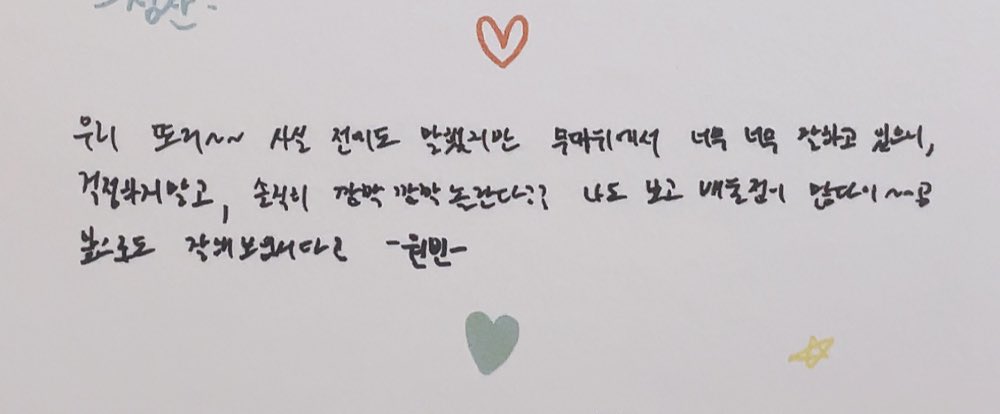 우리 또리~~ 사실 전에도 말했지만 무대위에서 너무 너무 잘하고 있으니,
걱정하지말고, 솔직히 깜박 깜박 논란다?? 나도 보고 배울점이 많다이~~공
앞으로도 잘해보입시다ㄹ -원민-